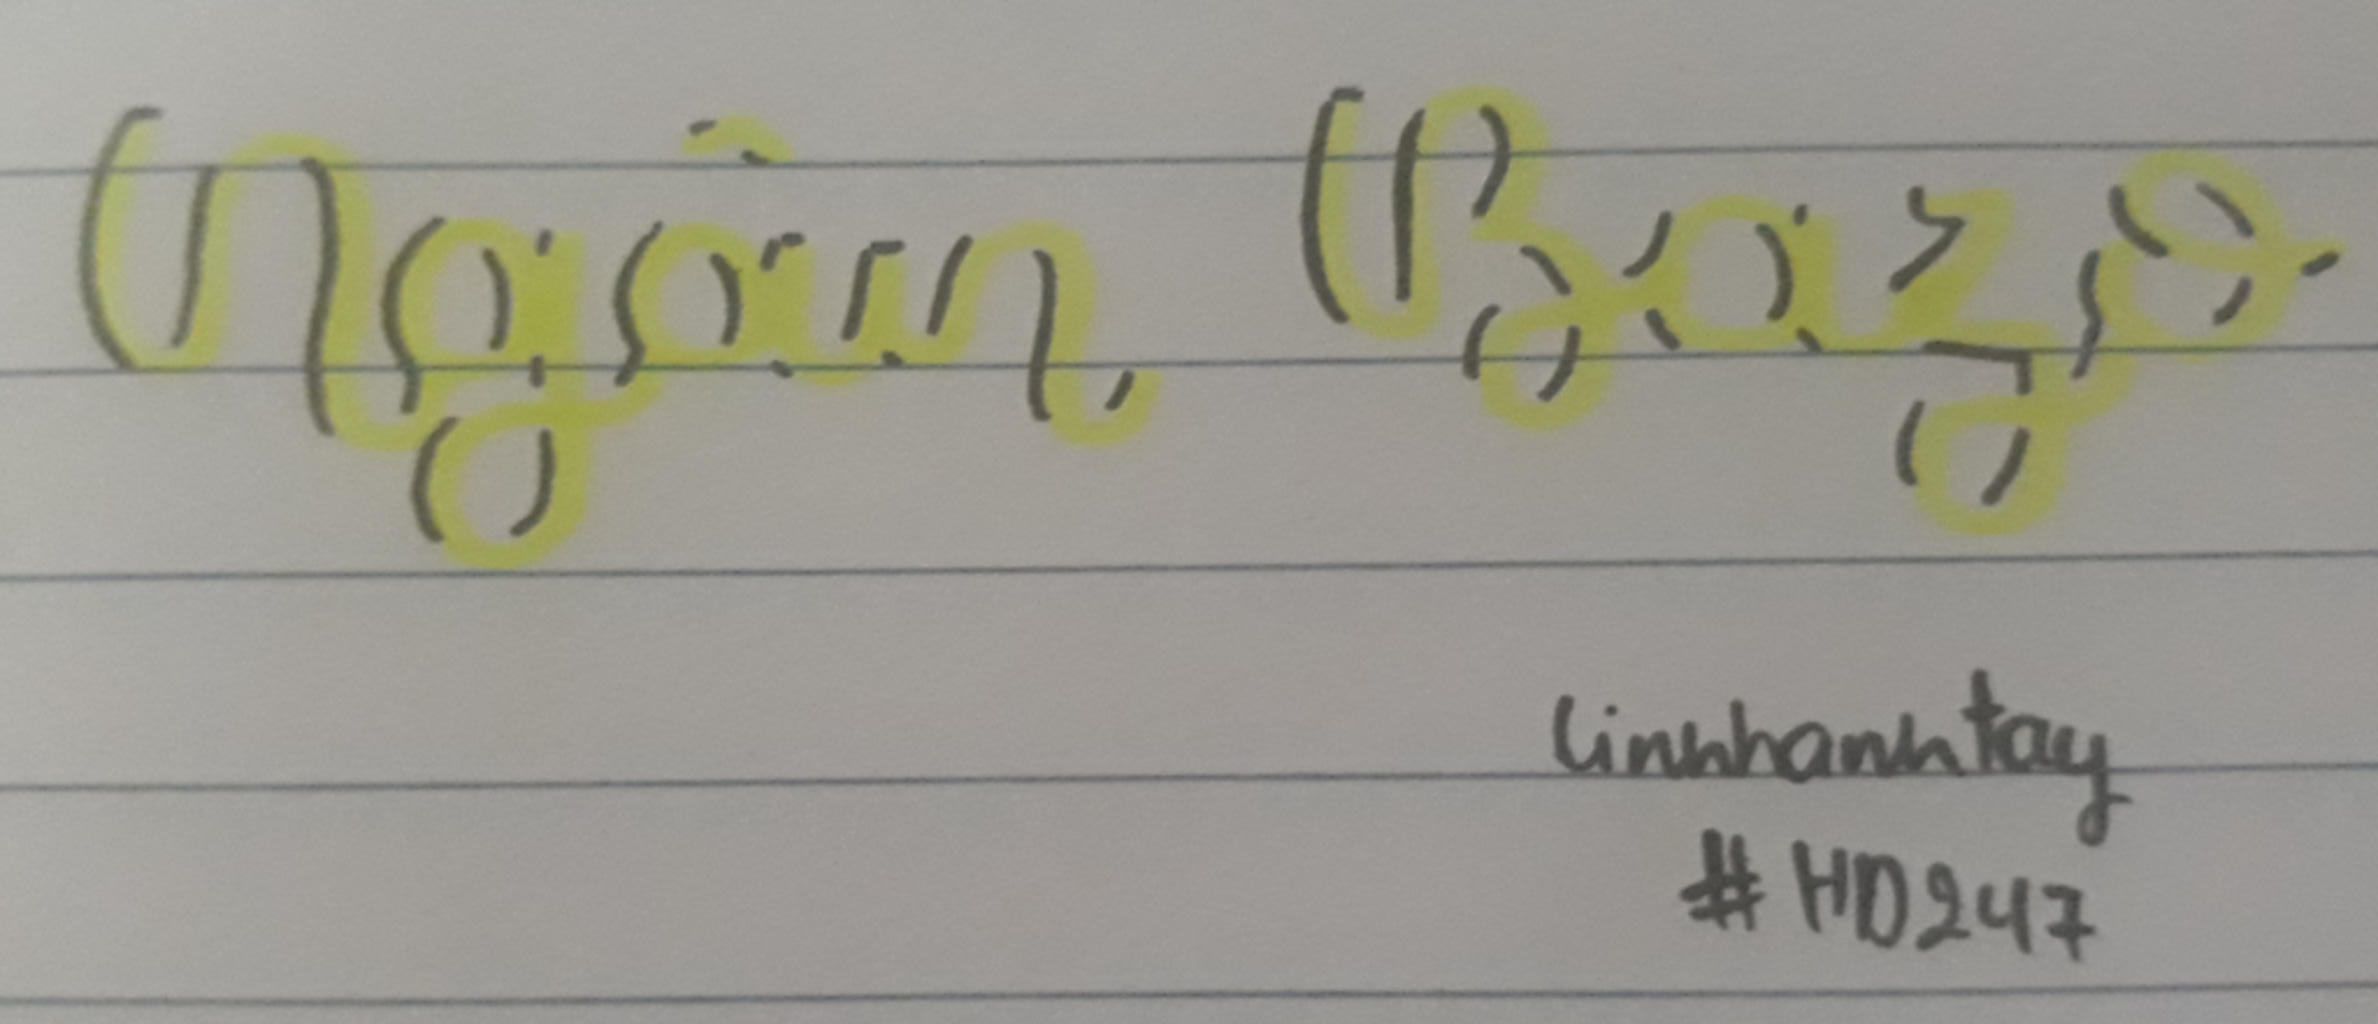 Ngân Bazo
linhhanhtay
#HD247